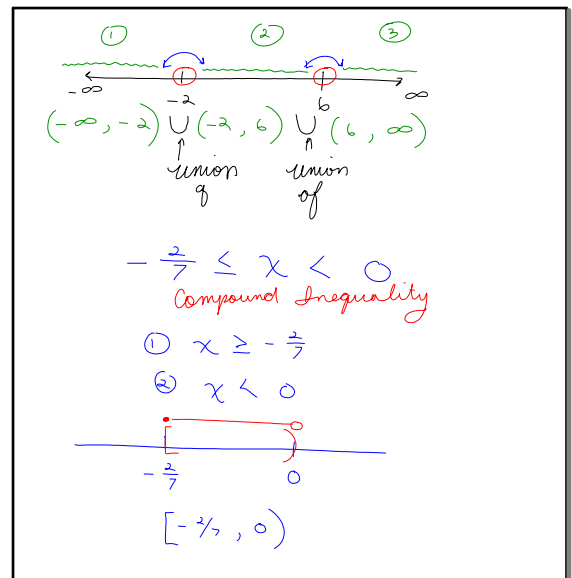 ① ② ③
-∞ -2 6 ∞
(-∞, -2) ∪ (-2, 6) ∪ (6, ∞)
union union
of of
- 2/7 ≤ x < 0
Compound Inequality
① x ≥ - 2/7
② x < 0
- 2/7 0
[- 2/7, 0)